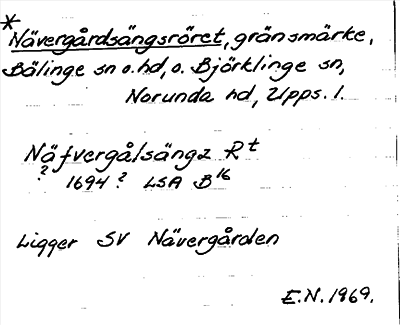 *
Nävergårdsängsröret, gränsmärke,
Bälinge sn o. hd, o. Björklinge sn,
Norunda hd, Upps. l.
Näfvergålsängz R t
? 1694 ? LSA B 16
Ligger SV Nävergården
E.N. 1969.